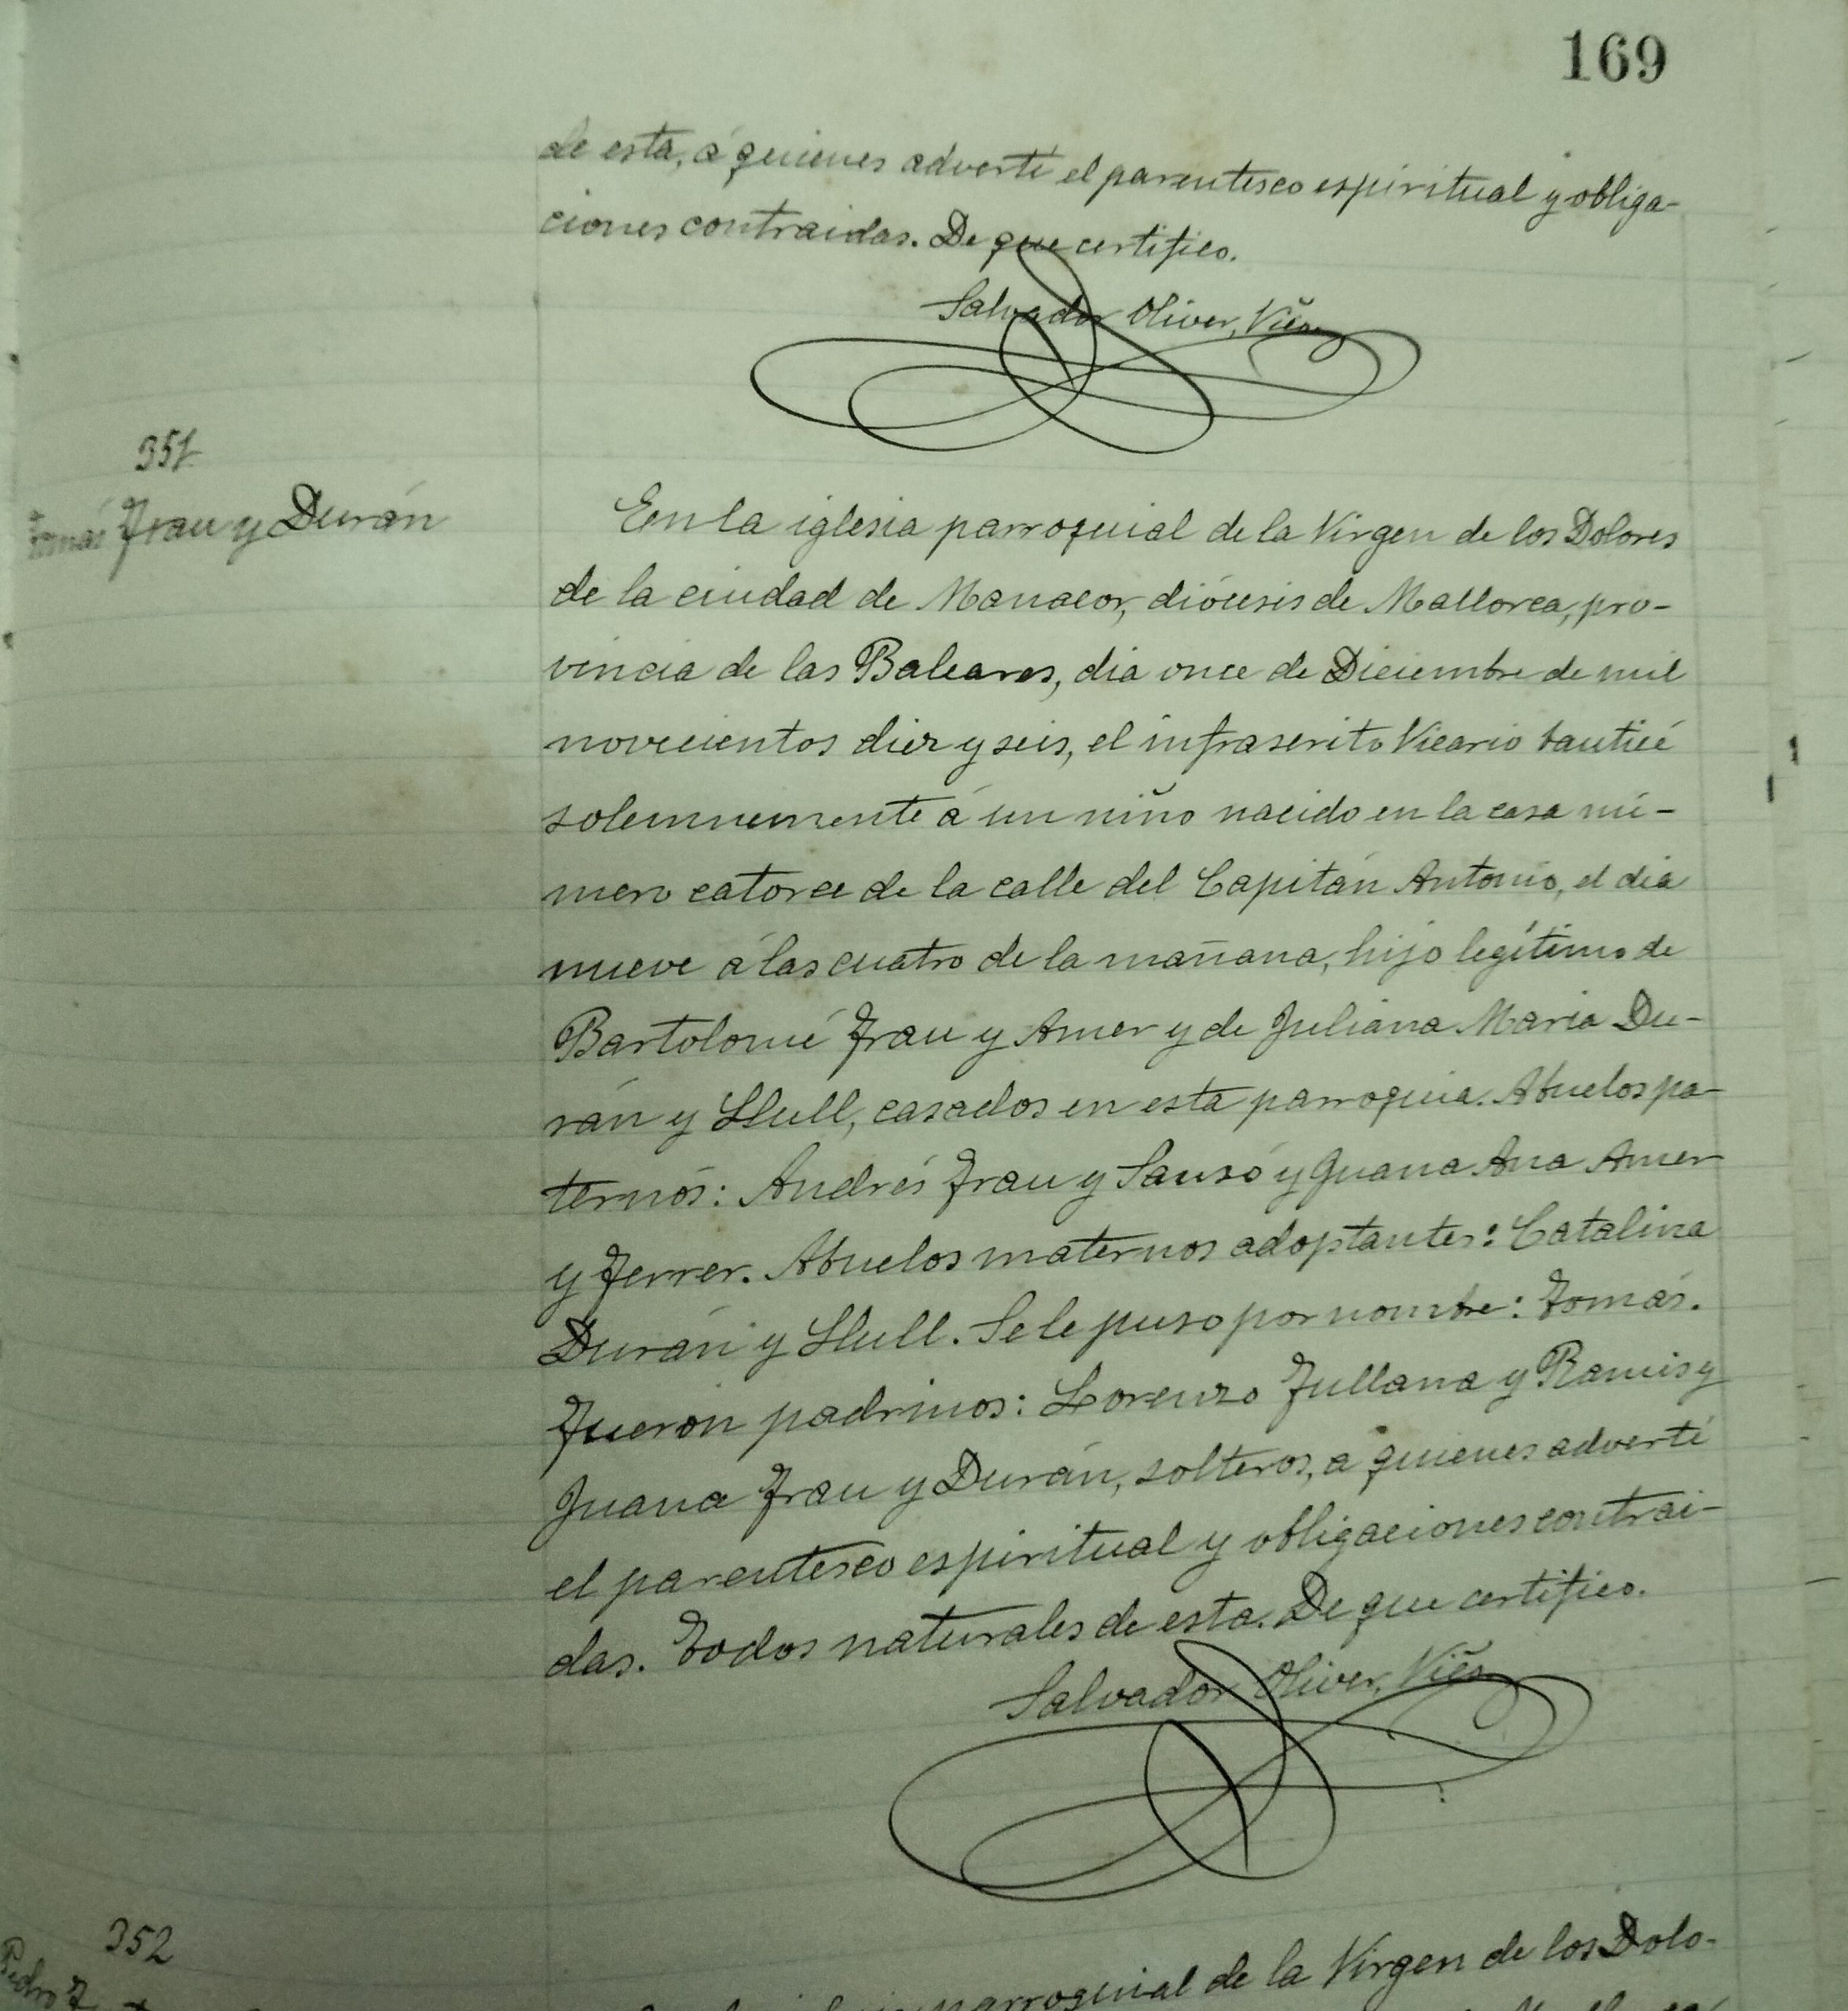 169
de esta, á quienes advertí el parentesco espiritual y obliga-
ciones contraidas. De que certifico.
Salvador Oliver, Vic.
351
Tomás Frau y Durán
En la iglesia parroquial de la Virgen de los Dolores
de la ciudad de Manacor, diócesis de Mallorca, pro-
vincia de las Baleares, dia once de Diciembre de mil
novecientos diez y seis, el infrascrito Vicario bauticé
solemnemente á un niño nacido en la casa nú-
mero catorce de la calle del Capitán Antonio, el dia
nueve á las cuatro de la mañana, hijo legítimo de
Bartolomé Frau y Amer y de Juliana Maria Du-
rán y Llull, casados en esta parroquia. Abuelos pa-
ternos: Andrés Frau y Sansó y Juana Ana Amer
y Ferrer. Abuelos maternos adoptantes: Catalina
Durán y Llull. Se le puso por nombre: Tomás.
Fueron padrinos: Lorenzo Fullana y Ramis y
Juana Frau y Durán, solteros, a quienes advertí
el parentesco espiritual y obligaciones contrai-
das. Todos naturales de esta. De que certifico.
Salvador Oliver, Vic.
352
Pedro F
parroquial de la Virgen de los Dolo-